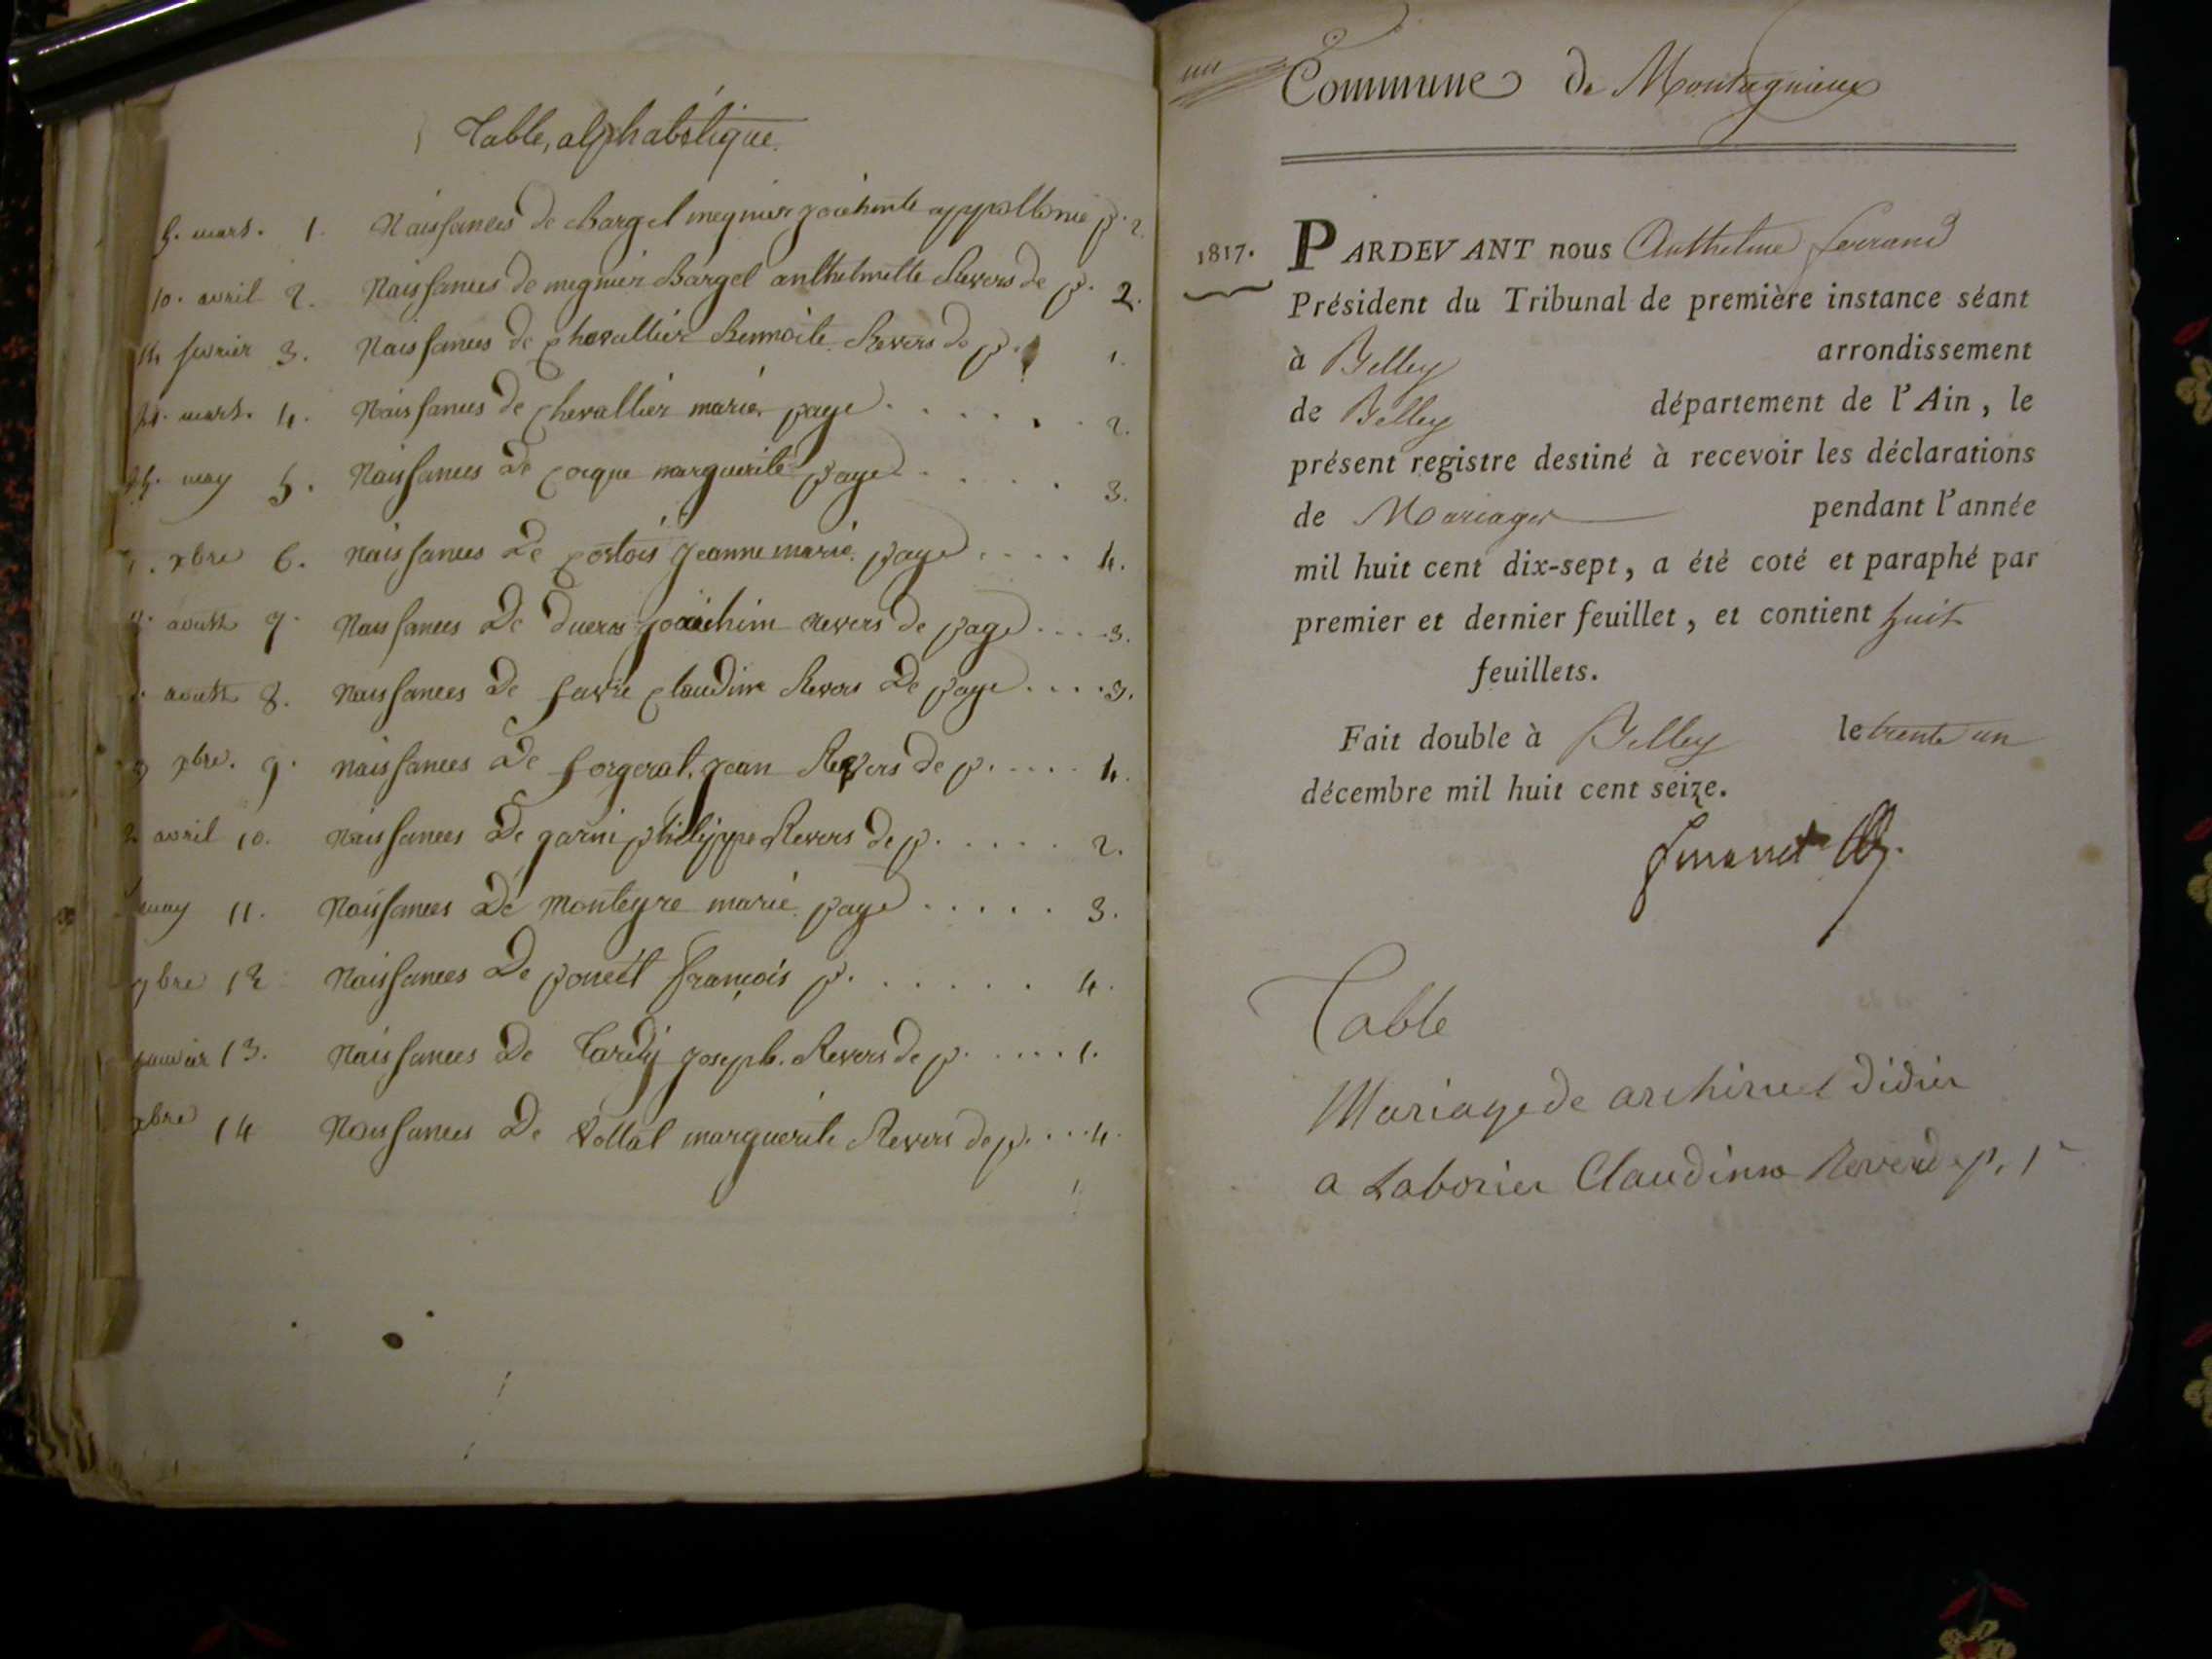 Table, alphabétique.
5. mars. 1. Naissances de Bargel megnier appollonie p. 2.
10. avril 2. Naissances de megnier Bargel anthelmette Revers de p. 2.
14 fevrier 3. Naissances de chevallier Bennoite Revers de p. 1.
mars. 4. Naissances de chevallier marie, page . . . . . . 2.
may 5. Naissances de cocque marguerite page . . . . . 3.
xbre 6. naissances de jeanne marie. page . . . . 4.
aoust 7. Naissances de joachim revers de page . . . . 3.
aoust 8. Naissances de favre claudine Revers de page . . . . 3.
xbre. 9. naissances de forgerat. jean Revers de p. . . . . 4.
avril 10. Naissances de garni philippe Revers de p. . . . . . 2.
may 11. Naissances de monteyre marie. page . . . . . 3.
bre 12 Naissances de françois p. . . . . . . 4.
janvier 13. Naissances de Tardy joseph. Revers de p. . . . . 1.
xbre 14 Naissances de vollat marguerite Revers de p. . . . 4.
un
Commune de Montagnieux
1817. PARDEVANT nous Anthelme ferrand
Président du Tribunal de première instance séant
à Belley arrondissement
de Belley département de l'Ain, le
présent registre destiné à recevoir les déclarations
de Mariages pendant l'année
mil huit cent dix-sept, a été coté et paraphé par
premier et dernier feuillet, et contient huit
feuillets.
Fait double à Belley le trente un
décembre mil huit cent seize.
Table
Mariage de didier
a Laborier Claudine Revers de p. 1